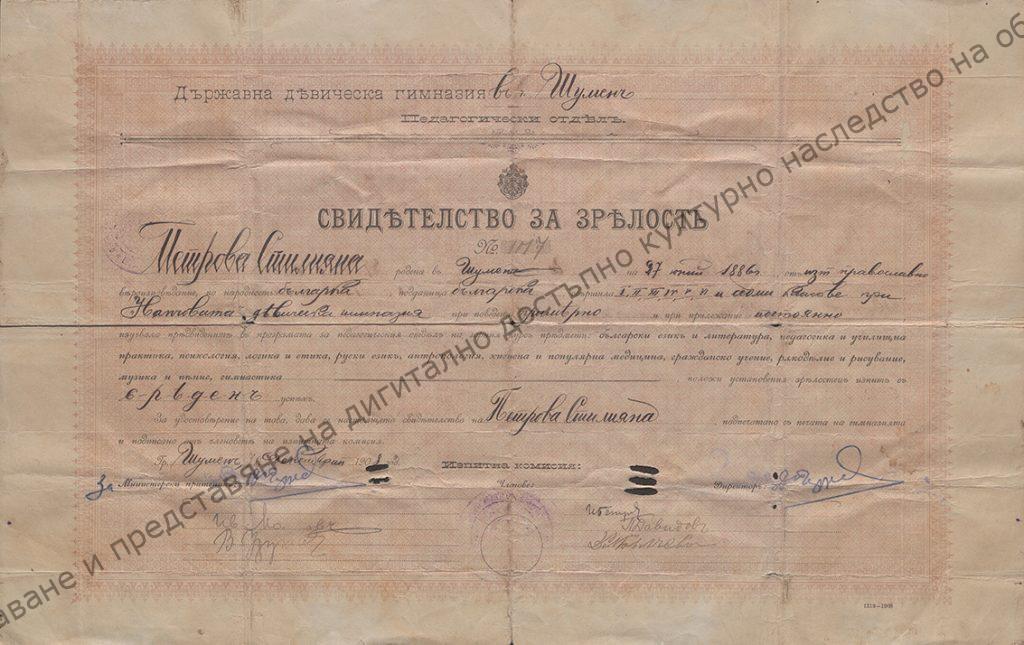 Държавна дѣвическа гимназия въ гр. Шуменъ
Педагогически отдѣлъ.
СВИДѢТЕЛСТВО ЗА ЗРѢЛОСТЬ
№ 1017
Петрова Стилияна родена въ Шуменъ на 27 юний 1886 г., отъ изт. православно
вѣроизповѣдание, по народность българка, поданица българска I, II, III, IV, V, VI и седми класове при
дѣвическа гимназия при поведение примѣрно и при прилежание постоянно
изучвало предвиденитѣ въ програмата за педагогическия отдѣлъ на предмети: български езикъ и литература, педагогика и училищна
практика, психология, логика и етика, руски езикъ, антропология, хигиена и популярна медицина, гражданско учение, рѫкодѣлие и рисуване,
музика и пѣние, гимнастика положи установения зрѣлостенъ изпитъ съ
срѣденъ успѣхъ.
За удостовѣрение на това, дава се настоящето свидѣтелство на Петрова Стилияна, подпечатано съ печата на гимназията
и подписано отъ членоветѣ на изпитната комисия.
Гр. Шуменъ, 190
Изпитна комисия:
За Министерски пратеникъ: Членове: Директоръ:
П. Давидовъ
1319—1908
даване и представяне на дигитално достъпно културно наследство на об